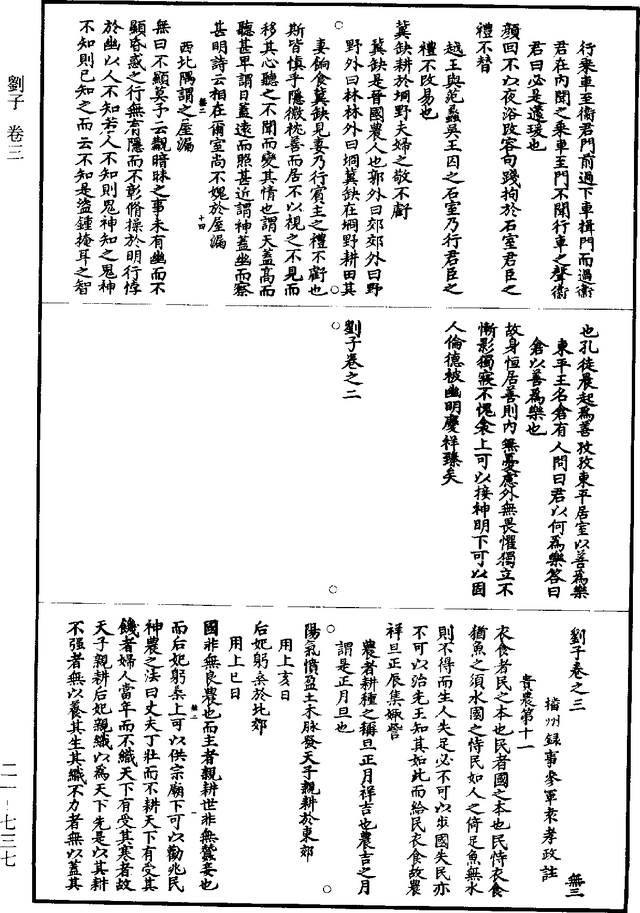 行乘車至衞君門前過下車揖門而過衞
君在內聞之乘車至門不聞行車之聲衞
君曰必是蘧瑗也
顔回不以夜浴改容句踐拘於石室君臣之
禮不替
越王與范蠡吳王囚之石室乃行君臣之
禮不改易也
冀缺耕於坰野夫婦之敬不虧
冀缺是晉國農人也郭外曰郊郊外曰野
野外曰林林外曰坰冀缺在坰野耕田其
妻餉食冀缺見妻乃行賓主之禮不虧也
斯皆慎乎隱微枕善而居不以視之不見而
移其心聽之不聞而變其情也謂天蓋高而
聽甚卑謂日蓋遠而照甚近謂神蓋幽而察
甚明詩云相在爾室尚不媿於屋漏
無二
十四
西北隅謂之屋漏
無曰不顯莫予云觀暗昧之事未有幽而不
顯昏惑之行無有隱而不彰脩操於明行悖
於幽以人不知若人不知則鬼神知之鬼神
不知則已知之而云不知是盜鍾掩耳之智
也孔徒晨起爲善孜孜東平居室以善爲樂
東平王名倉有人問曰君以何爲樂答曰
倉以善爲樂也
故身恒居善則內無憂慮外無畏懼獨立不
慚影獨寢不愧衾上可以接神明下可以固
人倫德被幽明慶祥臻矣
劉子卷之二
劉子卷之三
無三
播州錄事參軍袁孝政註
貴農第十一
衣食者民之本也民者國之本也民恃衣食
猶魚之須水國之恃民如人之倚足魚無水
則不得而生人失足必不可以步國失民亦
不可以治先王知其如此而給民衣食故農
祥旦正辰集娵訾
農者耕種之稱旦正月祥吉也農吉之月
謂是正月旦也
陽氣憤盈土木脉發天子親耕於東郊
用上亥日
后妃躬桑於北郊
用上巳日
國非無良農也而主者親耕世非無蠶妾也
而后妃躬桑上可以供宗廟下可以勸兆民
神農之法曰丈夫丁壯而不耕天下有受其
饑者婦人當年而不織天下有受其寒者故
天子親耕后妃親織以爲天下先是以其耕
不强者無以養其生其織不力者無以蓋其
劉子　卷三
二一–七三七